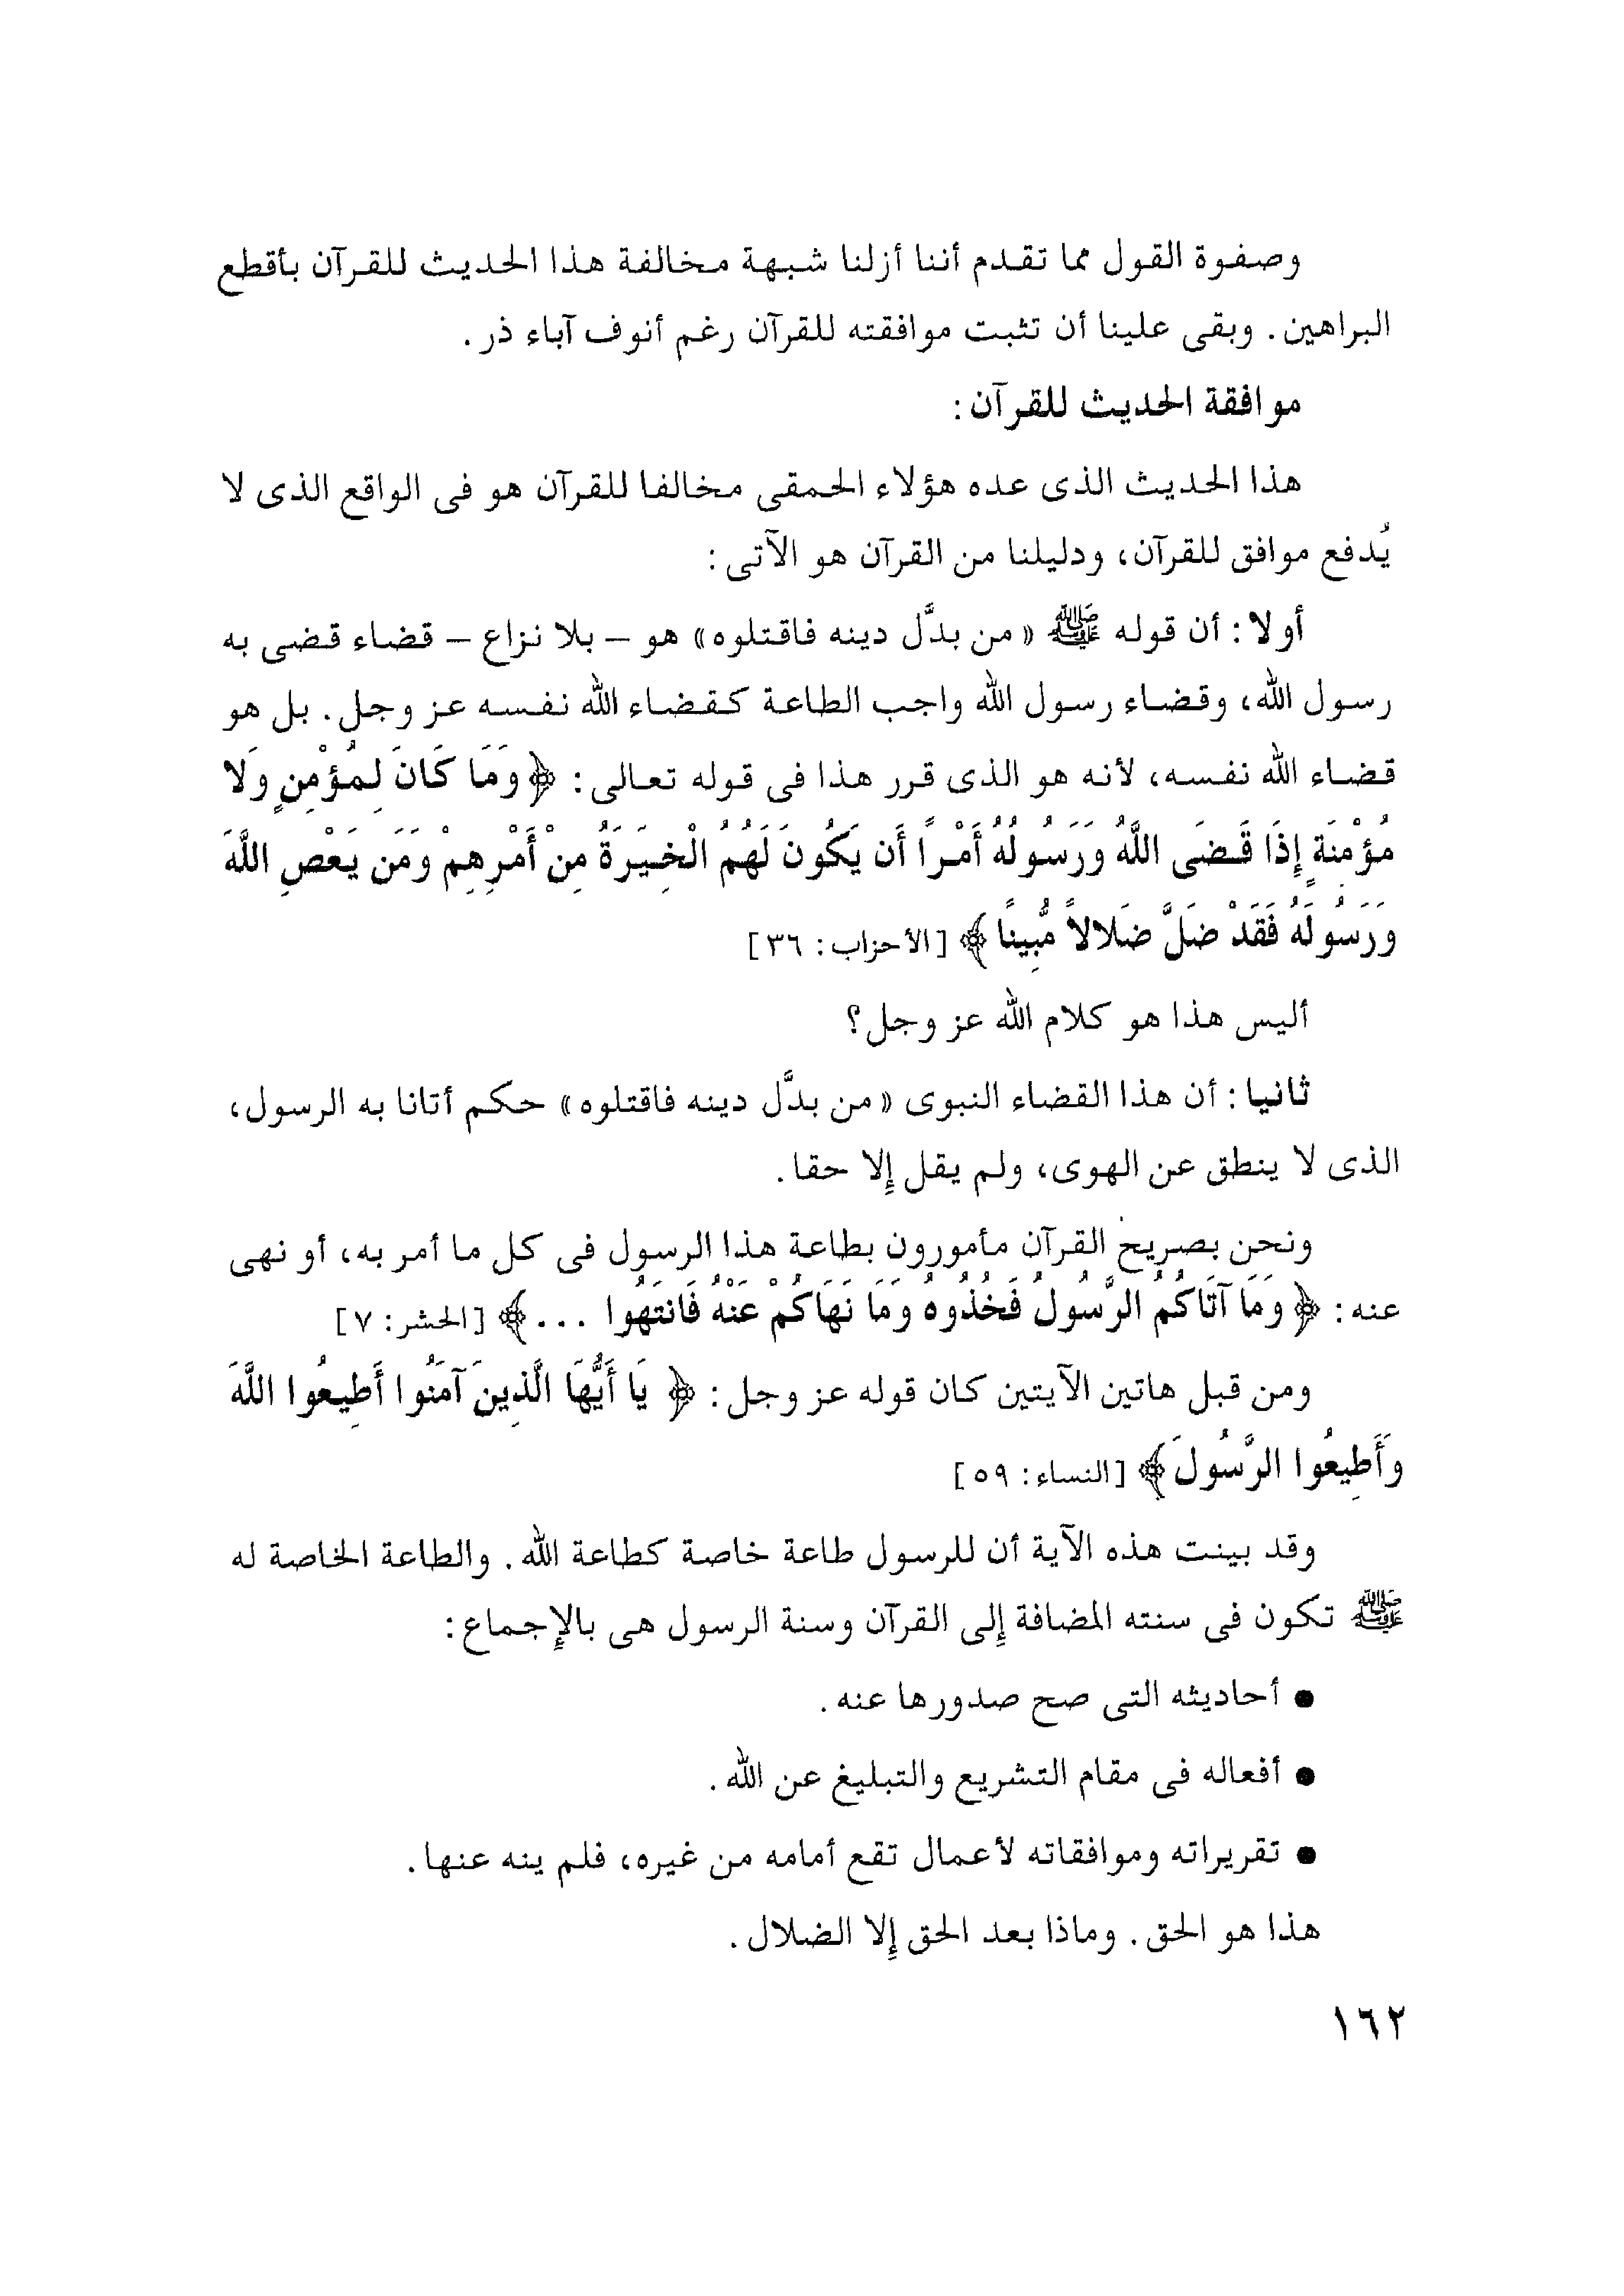 وصفوة القول مما تقدم أننا أزلنا شبهة مخالفة هذا الحديث للقرآن بأقطع
البراهين. وبقى علينا أن تثبت موافقته للقرآن رغم أنوف آباء ذر.
موافقة الحديث للقرآن:
هذا الحديث الذى عده هؤلاء الحمقى مخالفا للقرآن هو فى الواقع الذى لا
يُدفع موافق للقرآن، ودليلنا من القرآن هو الآتى:
أولا: أن قوله ﷺ «من بدَّل دينه فاقتلوه» هو – بلا نزاع – قضاء قضى به
رسول الله، وقضاء رسول الله واجب الطاعة كقضاء الله نفسه عز وجل. بل هو
قضاء الله نفسه، لأنه هو الذى قرر هذا فى قوله تعالى: ﴿وَمَا كَانَ لِمُؤْمِنٍ وَلا
مُؤْمِنَةٍ إِذَا قَضَى اللَّهُ وَرَسُولُهُ أَمْراً أَن يَكُونَ لَهُمُ الْخِيَرَةُ مِنْ أَمْرِهِمْ وَمَن يَعْصِ اللَّهَ
وَرَسُولَهُ فَقَدْ ضَلَّ ضَلالاً مُّبِيناً﴾ [الأحزاب: ٣٦]
أليس هذا هو كلام الله عز وجل؟
ثانيا: أن هذا القضاء النبوى «من بدَّل دينه فاقتلوه» حكم أتانا به الرسول،
الذى لا ينطق عن الهوى، ولم يقل إلا حقا.
ونحن بصريح القرآن مأمورون بطاعة هذا الرسول فى كل ما أمر به، أو نهى
عنه: ﴿وَمَا آتَاكُمُ الرَّسُولُ فَخُذُوهُ وَمَا نَهَاكُمْ عَنْهُ فَانتَهُوا ...﴾ [الحشر: ٧]
ومن قبل هاتين الآيتين كان قوله عز وجل: ﴿يَا أَيُّهَا الَّذِينَ آمَنُوا أَطِيعُوا اللَّهَ
وَأَطِيعُوا الرَّسُولَ﴾ [النساء: ٥٩]
وقد بينت هذه الآية أن للرسول طاعة خاصة كطاعة الله. والطاعة الخاصة له
ﷺ تكون فى سنته المضافة إلى القرآن وسنة الرسول هى بالإجماع:
● أحاديثه التى صح صدورها عنه.
● أفعاله فى مقام التشريع والتبليغ عن الله.
● تقريراته وموافقاته لأعمال تقع أمامه من غيره، فلم ينه عنها.
هذا هو الحق. وماذا بعد الحق إلا الضلال.
١٦٢